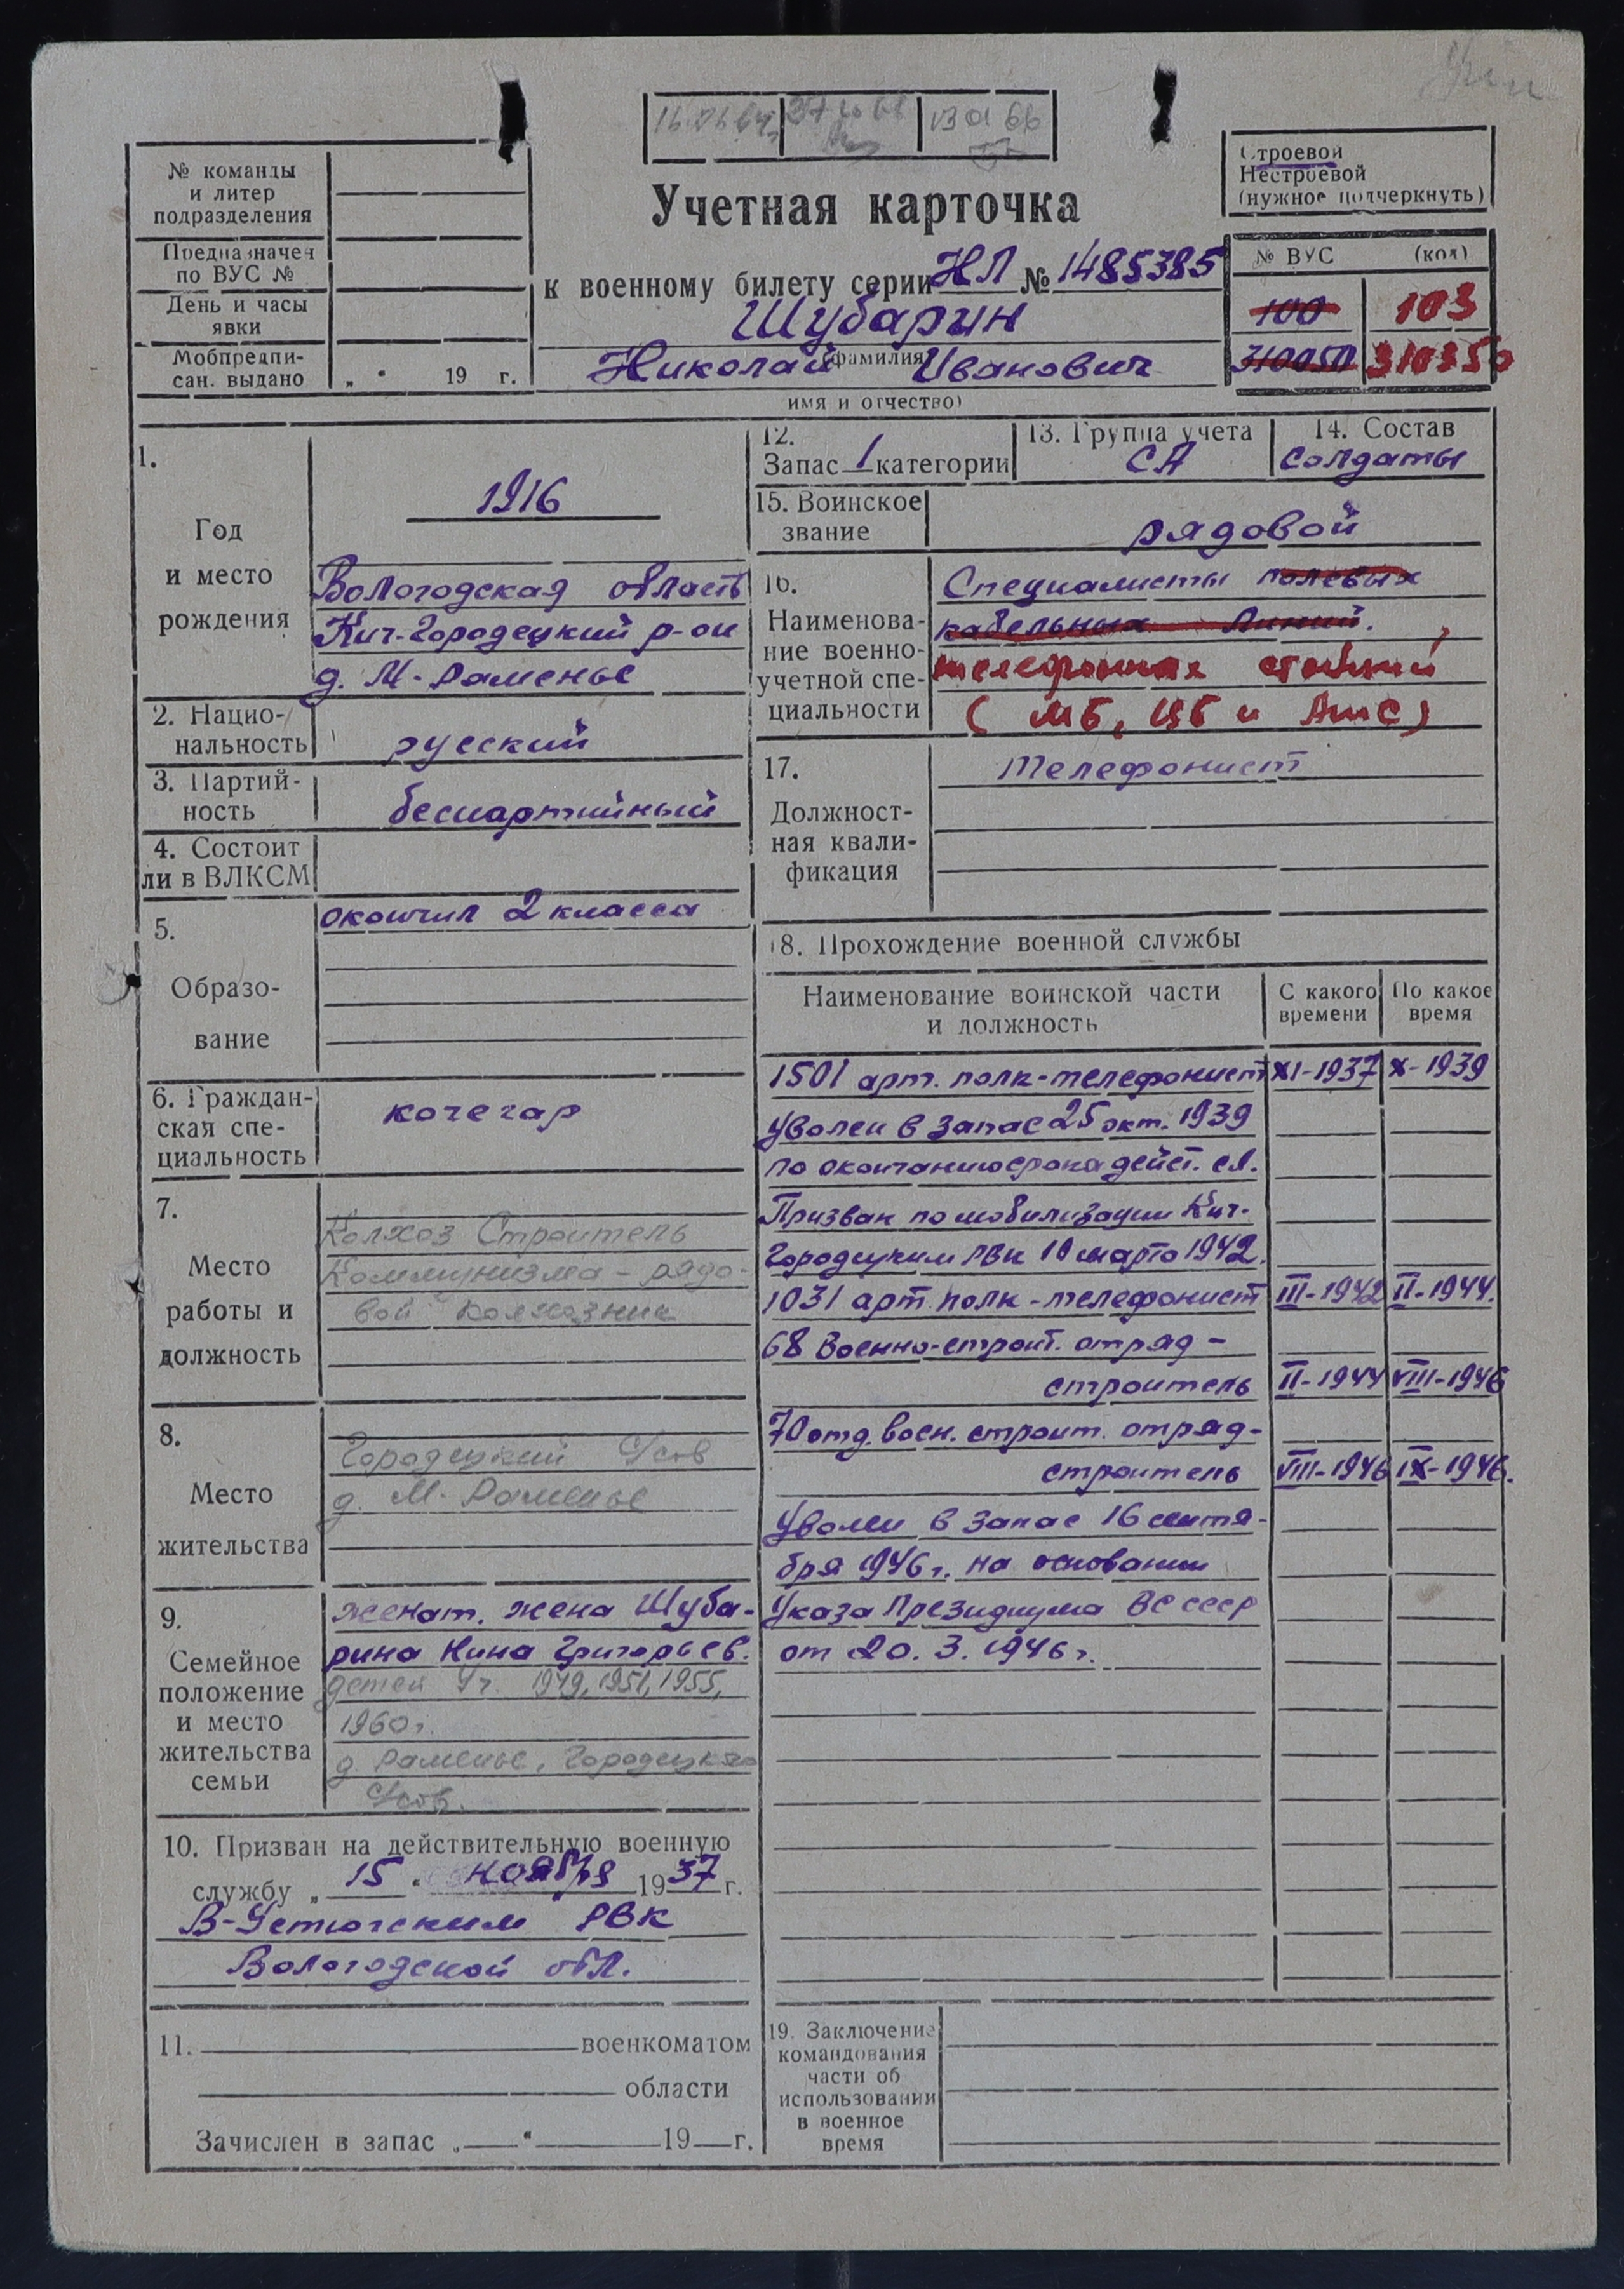 13 01 66
№ команды
и литер
подразделения
Предназначен
по ВУС №
День и часы
явки
Мобпредпи-
сан. выдано „ " 19 г.
Учетная карточка
к военному билету серии НЛ № 1485385
Шубарин
(фамилия
Николай Иванович
имя и отчество)
Строевой
Нестроевой
(нужное подчеркнуть)
№ ВУС (код)
100 103
310050 310350
1.
Год
и место
рождения
1916
Вологодская область
Кич-Городецкий р-он
д. М-Раменье
2. Нацио-
нальность
русский
3. Партий-
ность
беспартийный
4. Состоит
ли в ВЛКСМ
5.
Образо-
вание
окончил 2 класса
6. Граждан-
ская спе-
циальность
кочегар
7.
Место
работы и
должность
Колхоз Строитель
Коммунизма - рядо-
вой колхозник
8.
Место
жительства
Городецкий с/сов
д. М-Раменье
9.
Семейное
положение
и место
жительства
семьи
женат. жена Шуба-
рина Нина Григорьев.
детей 4 ч. 1949, 1951, 1955,
1960г.
д. Раменье, Городецкого
с/сов.
10. Призван на действительную военную
службу „ 15 " ноября 1937 г.
В-Устюгским РВК
Вологодской обл.
11. военкоматом
области
Зачислен в запас „ " 19 г.
12.
Запас 1 категории
13. Группа учета
СА
14. Состав
солдаты
15. Воинское
звание
рядовой
16.
Наименова-
ние военно-
учетной спе-
циальности
Специалисты полевых
кабельных линий.
телефонных станций
( МБ, ЦБ и АТС )
17.
Должност-
ная квали-
фикация
телефонист
18. Прохождение военной службы
Наименование воинской части
и должность
С какого
времени
По какое
время
1501 арт. полк-телефонист XI-1937 X-1939
Уволен в запас 25 окт. 1939
по окончанию срока дейст. сл.
Призван по мобилизации Кич-
Городецким РВК 10 марта 1942.
1031 арт. полк-телефонист III-1942 II-1944.
68 Военно-строит. отряд -
строитель II-1944 VIII-1946
70 отд. воен. строит. отряд-
строитель VIII-1946 IX-1946.
Уволен в запас 16 сентя-
бря 1946 г. на основании
Указа Президиума ВС СССР
от 20. 3. 1946 г.
19. Заключение
командования
части об
использовании
в военное
время